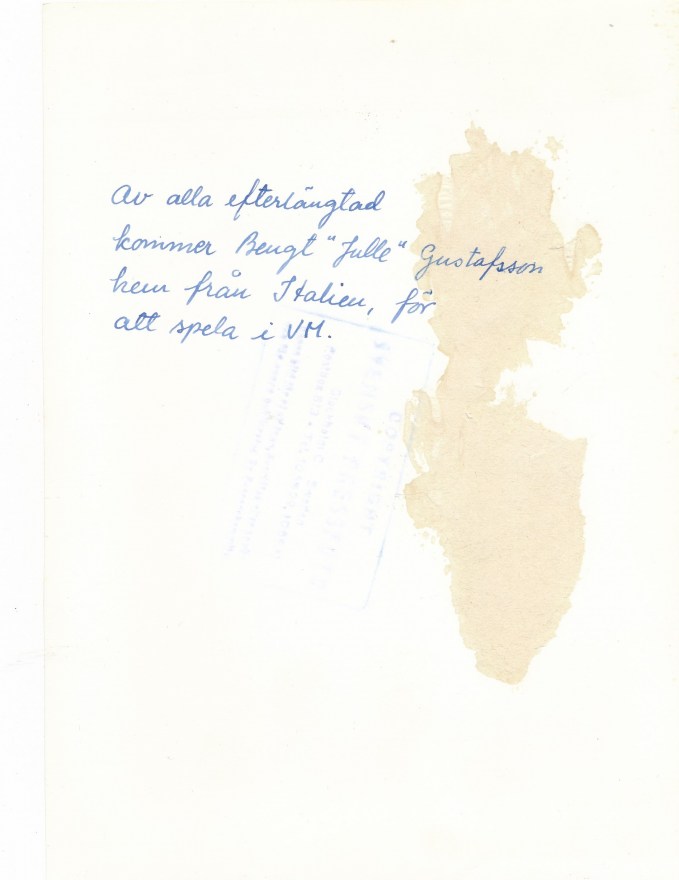 Av alla efterlängtad
kommer Bengt "Julle" Gustafsson
hem från Italien, för
att spela i VM.